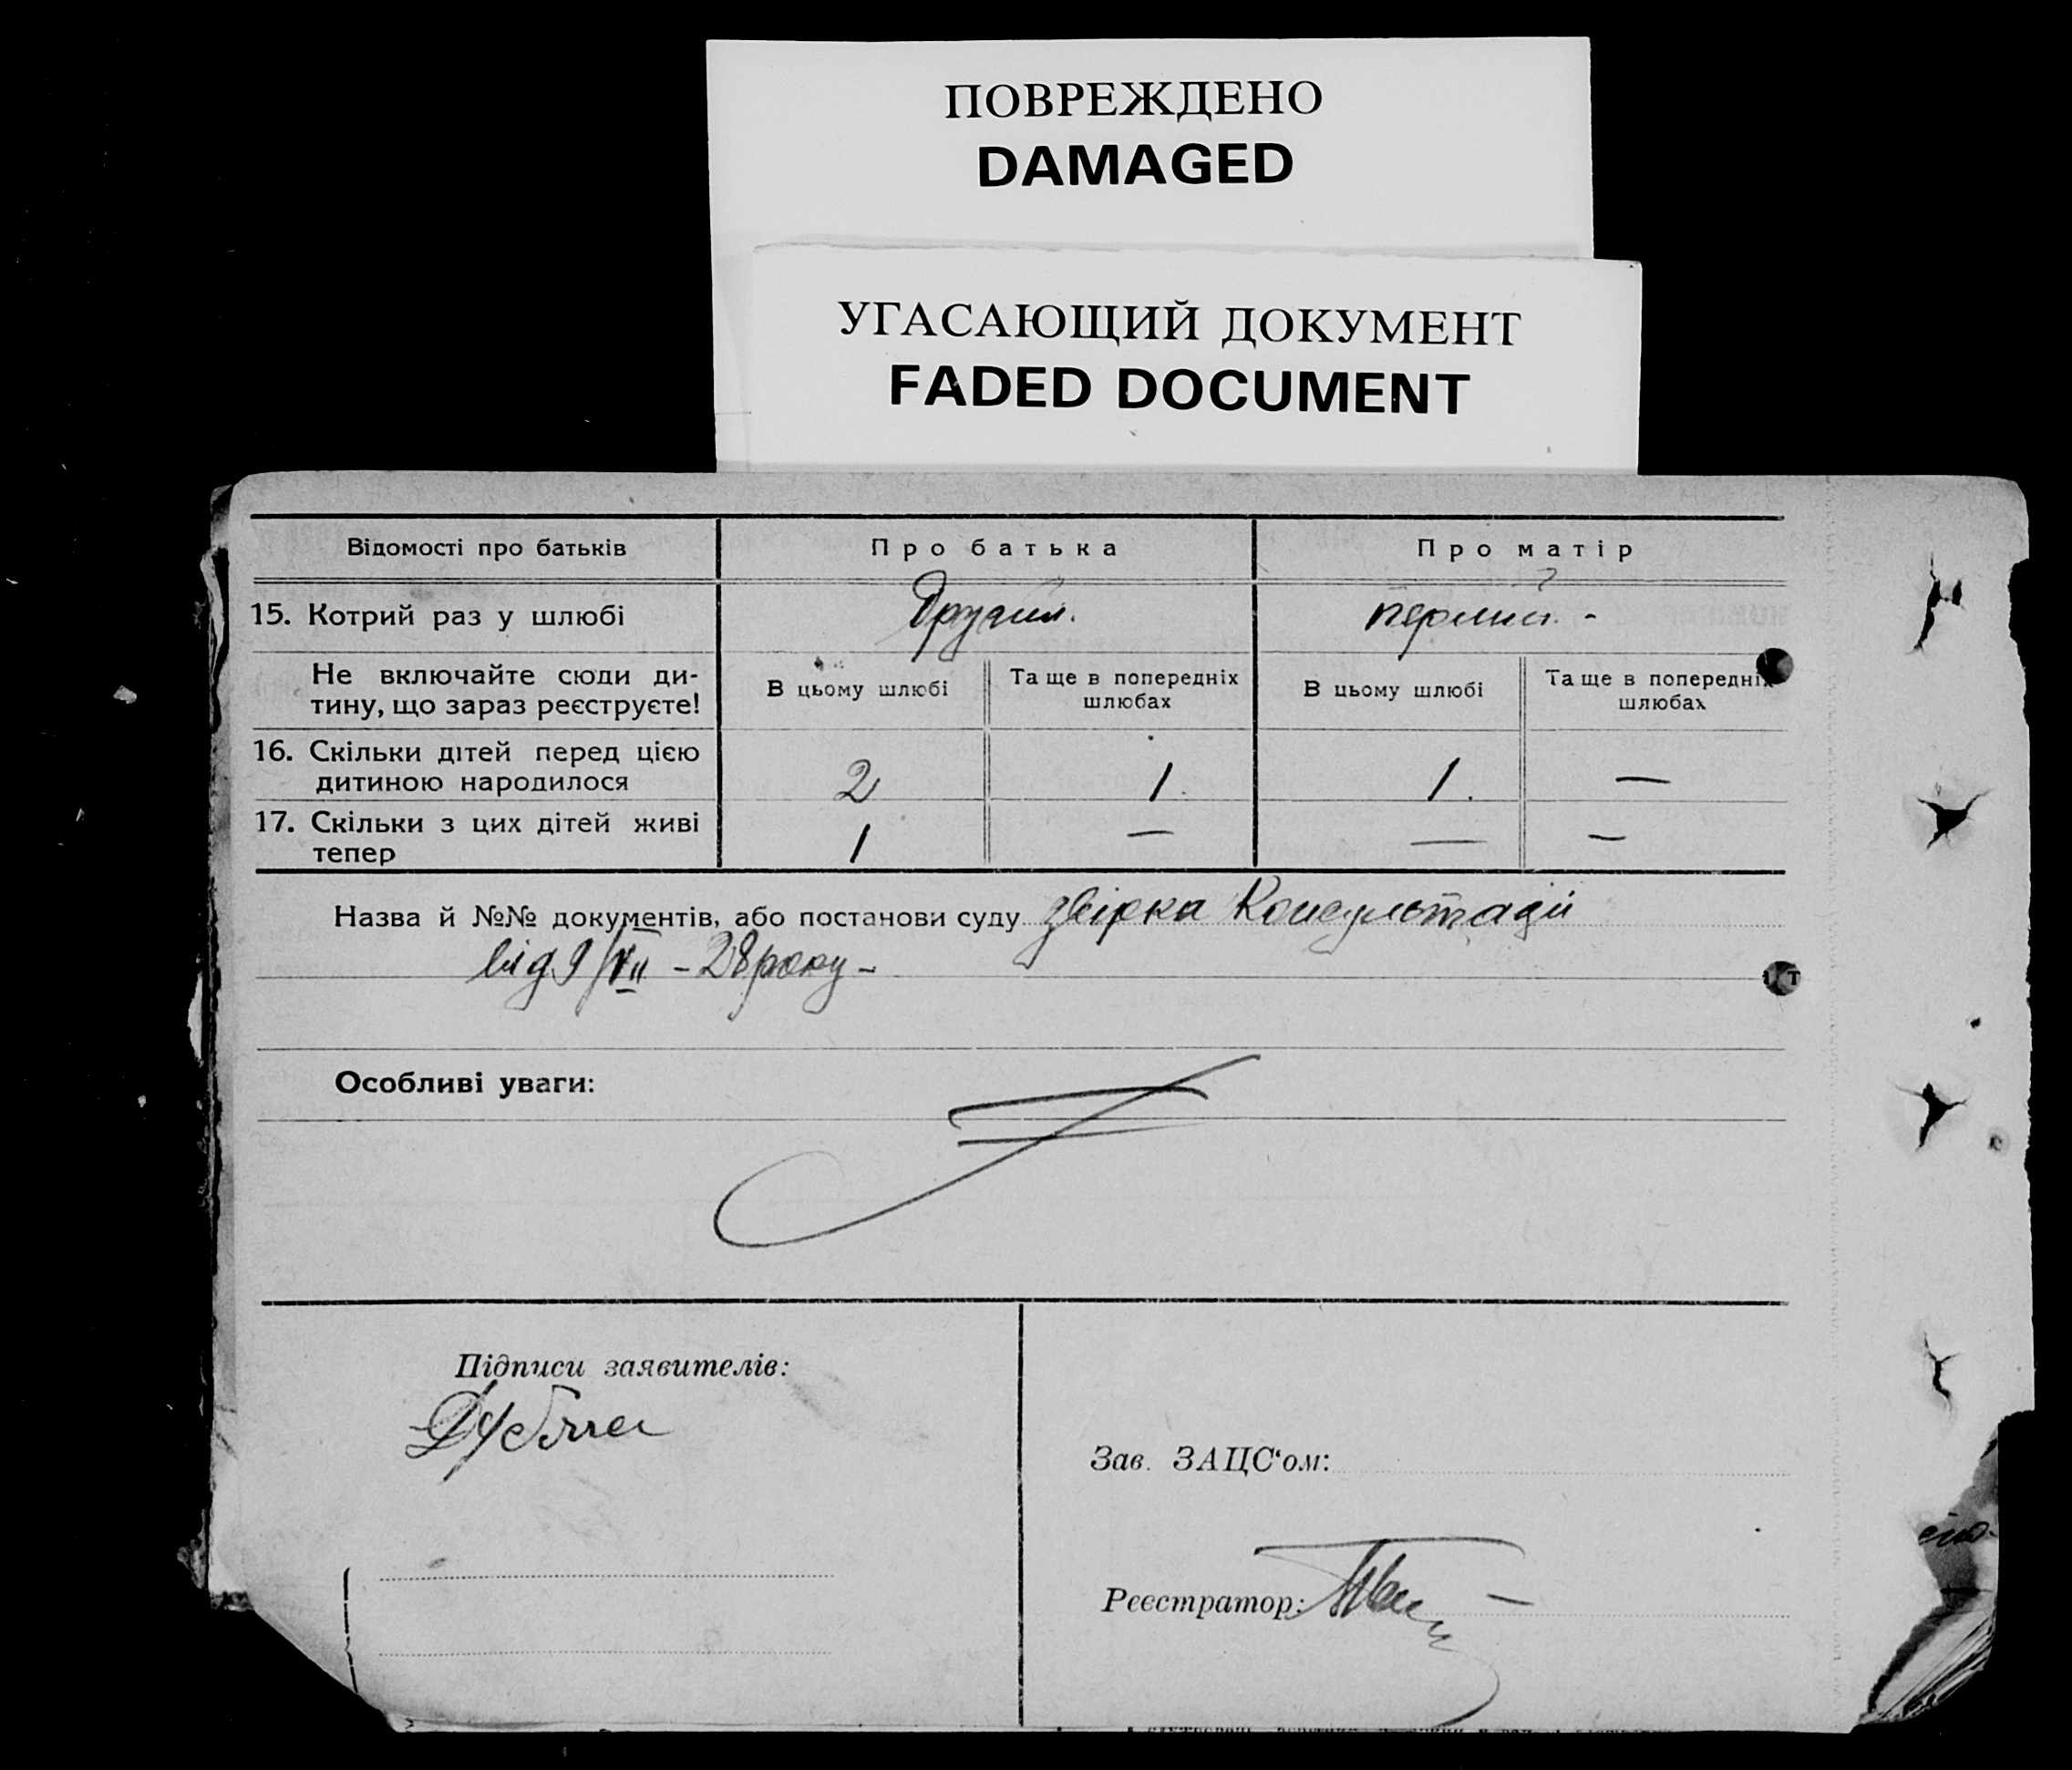 ПОВРЕЖДЕНО
DAMAGED
УГАСАЮЩИЙ ДОКУМЕНТ
FADED DOCUMENT
Відомості про батьків Про батька Про матір
15. Котрий раз у шлюбі другий. перший. -
Не включайте сюди ди-
тину, що зараз реєструєте!
В цьому шлюбі
Та ще в попередніх
шлюбах
В цьому шлюбі
Та ще в попередніх
шлюбах
16. Скільки дітей перед цією
дитиною народилося
2 1. 1. —
17. Скільки з цих дітей живі
тепер
1 — — —
Назва й №№ документів, або постанови суду звірка Консультації
від 9/VII - 28 року -
Особливі уваги:
Підписи заявителів:
Зав. ЗАЦС‘ом:
Реєстратор: